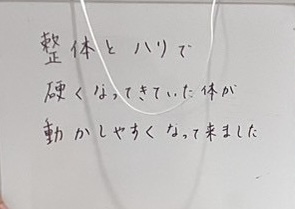 整体とハリで
硬くなってきていた体が
動かしやすくなって来ました